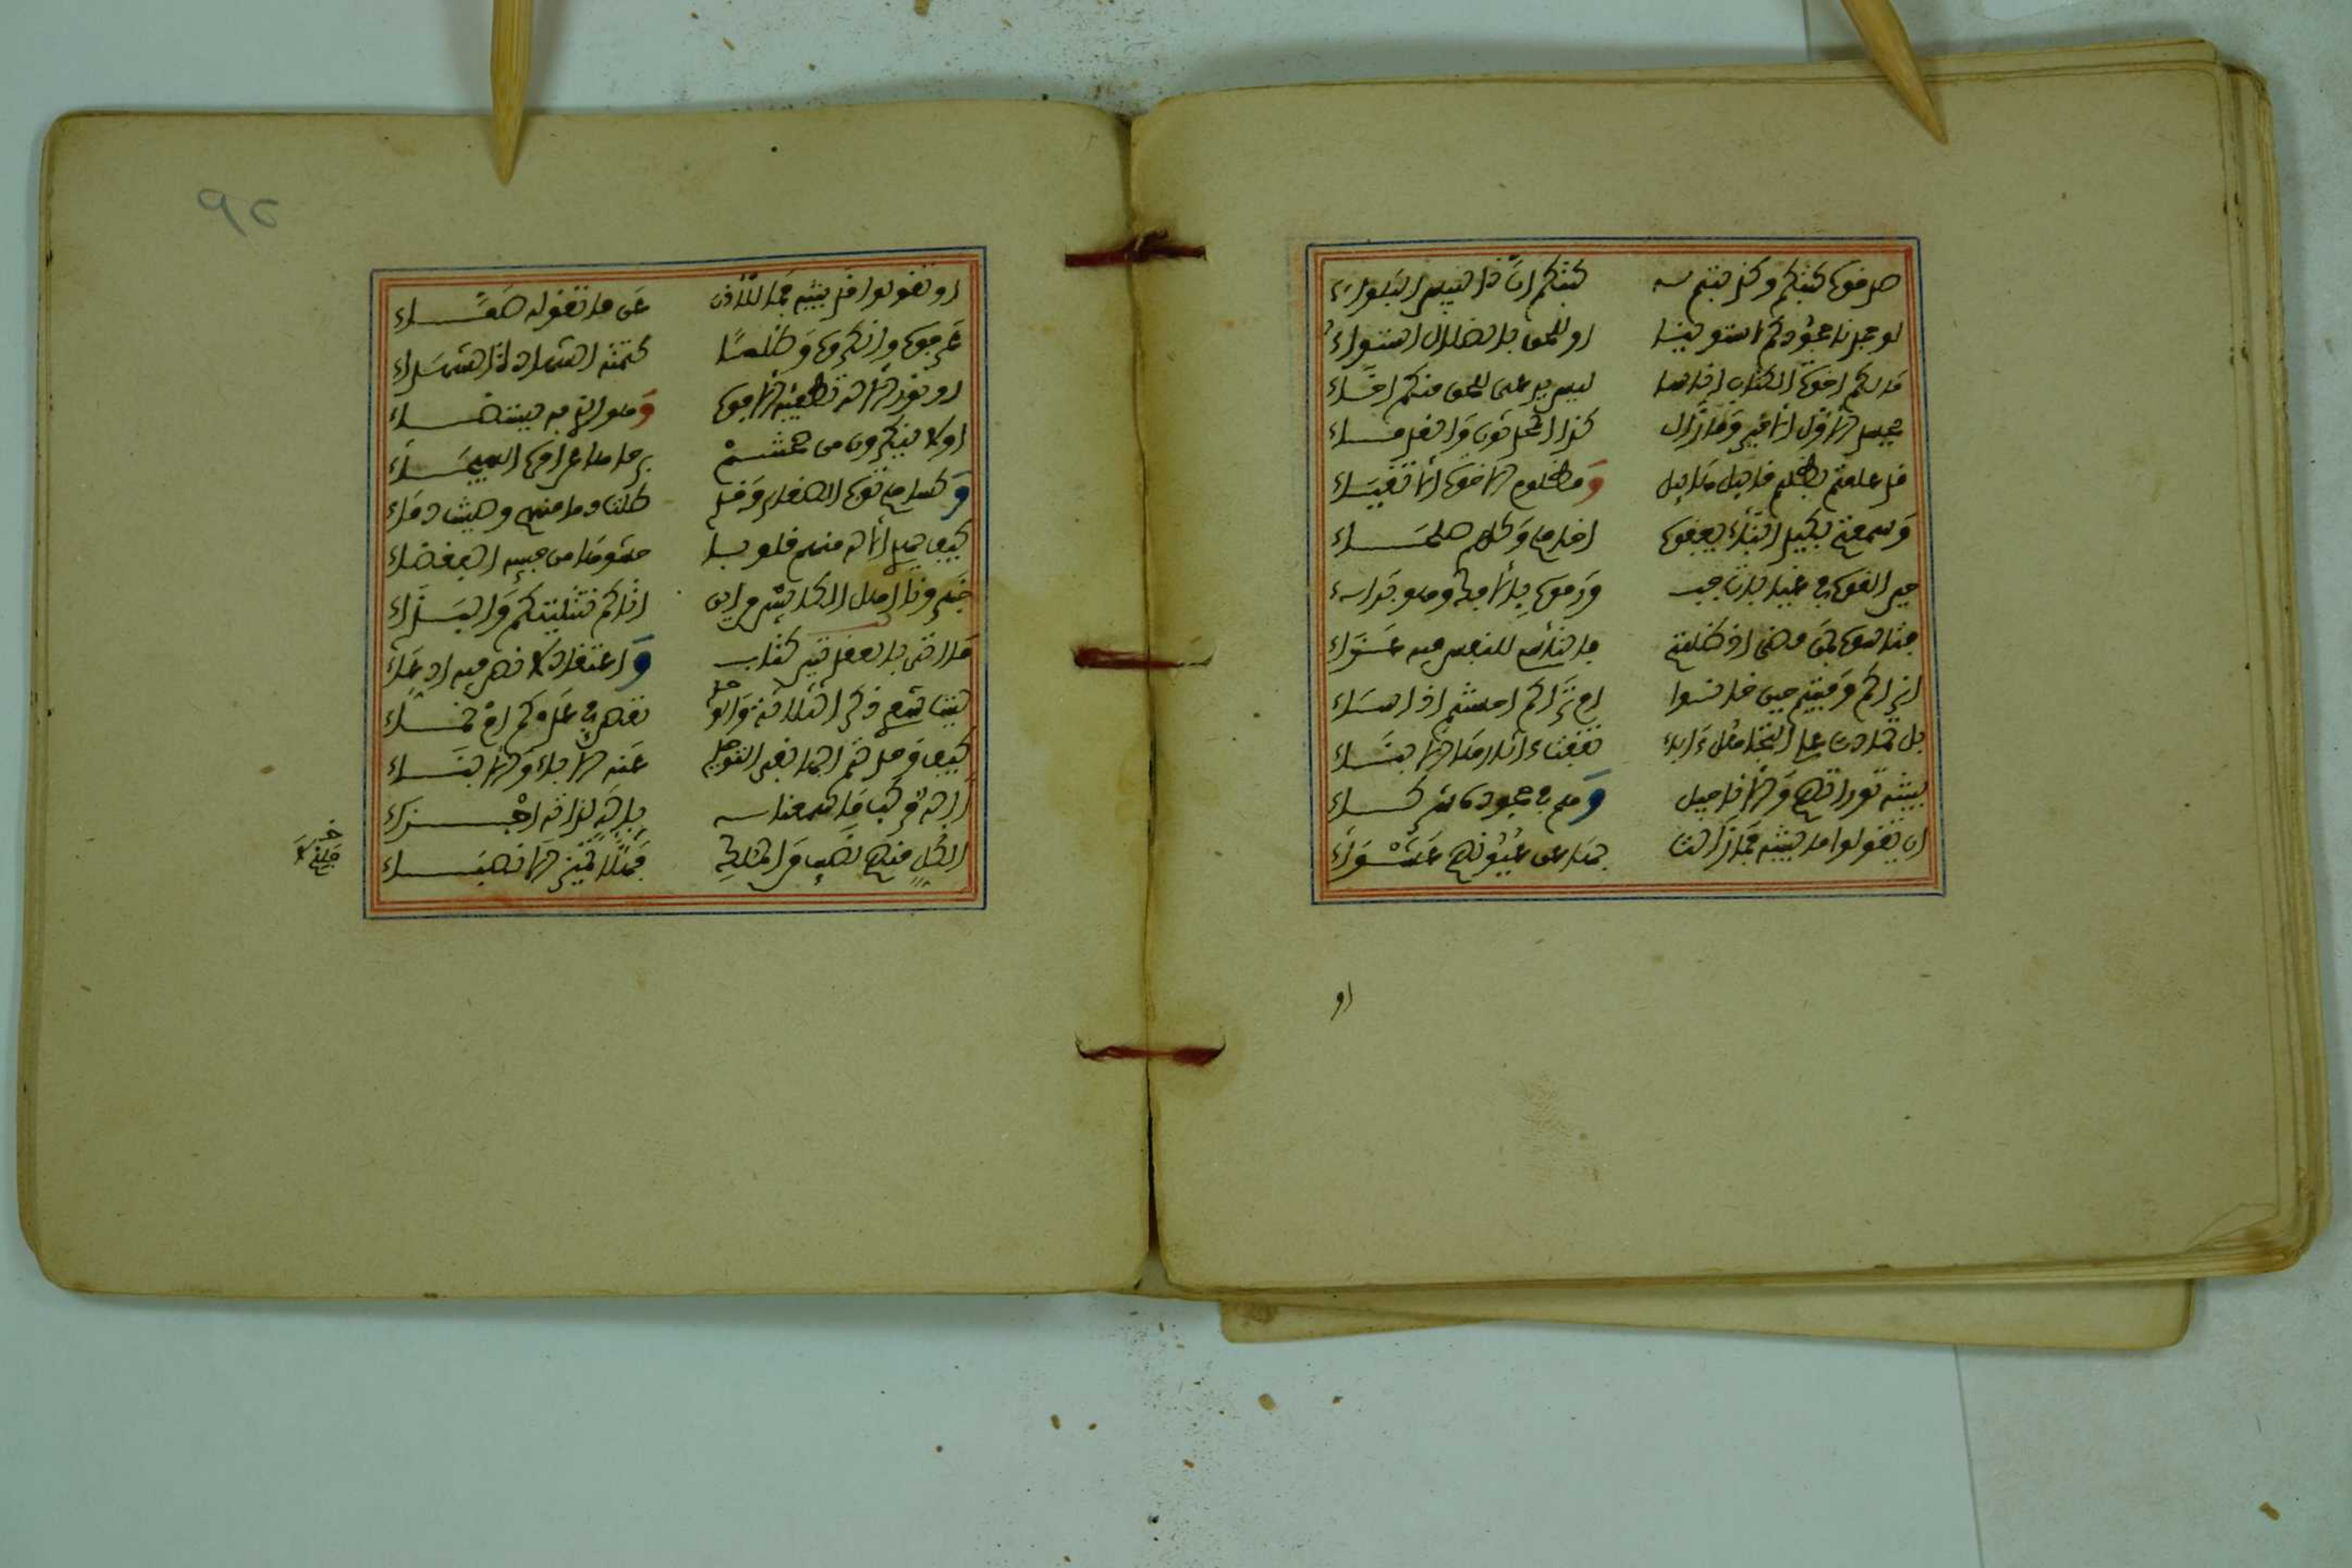 صدقوا كتبكم وكذبتم كتبهم إن ذا لبيس البواء
لو جحدنا جحودكم لاستوينا او للحق بالضلال استواء
مالكم اخوة الكتاب اناسا ليس يرعى للحق منكم اخاء
يحسد الاول الاخير وما زال كذا المحدثون والقدماء
قد علمتم بظلم قابيل هابيل ومظلوم الاخوة الاتقياء
وسمعتم بكيد ابناء يعقوب اخاهم وكلهم صلحاء
حين القوه في غيابات جب ورموه بالافك وهو براء
فتاسوا بمن مضى اذ ظلمتم فالتأسي للنفس فيه عزاء
اتراكم وفيتم حين خانوا ام تراكم احسنتم اذ اساء
بل تمادت على التجاهل ءاباء تقفت ءاثارها الابناء
بينته توراتهم والاناجيل وهم في جحوده شركاء
ان يقولوا ما بينته فما زالت بها عن عيونهم غشواء
او
٩٢
او تقولوا قد بينته فما للأذن عن ما تقوله صماء
عرفوه وانكروه وظلما كتمته الشهادة الشهداء
او نور الاله تطفئه الافوه وهو الذي به يستضاء
اولا ينكرون من برحاها الهيجاء
وكساهم ثوب الصغار وقد طلت دما منهم وصينت دماء
كيف يهدي الاله منهم قلوبا حشوها من حبيبه البغضاء
خبرونا اهل الكتابين من اين اتاكم تثليثكم والبداء
ما اتى بالعقيدتين كتاب واعتقاد لا نص فيه ادعاء
ليت شعري ذكر الثلاثة والواحد نقص في عدكم ام نماء
كيف وحدتم الها نفى التوحيد عنه الاباء والابناء
أإله مركب ما سمعنا بإله لذاته اجزاء
الكل منهم نصيب من الملك فهلا تميز الانصباء